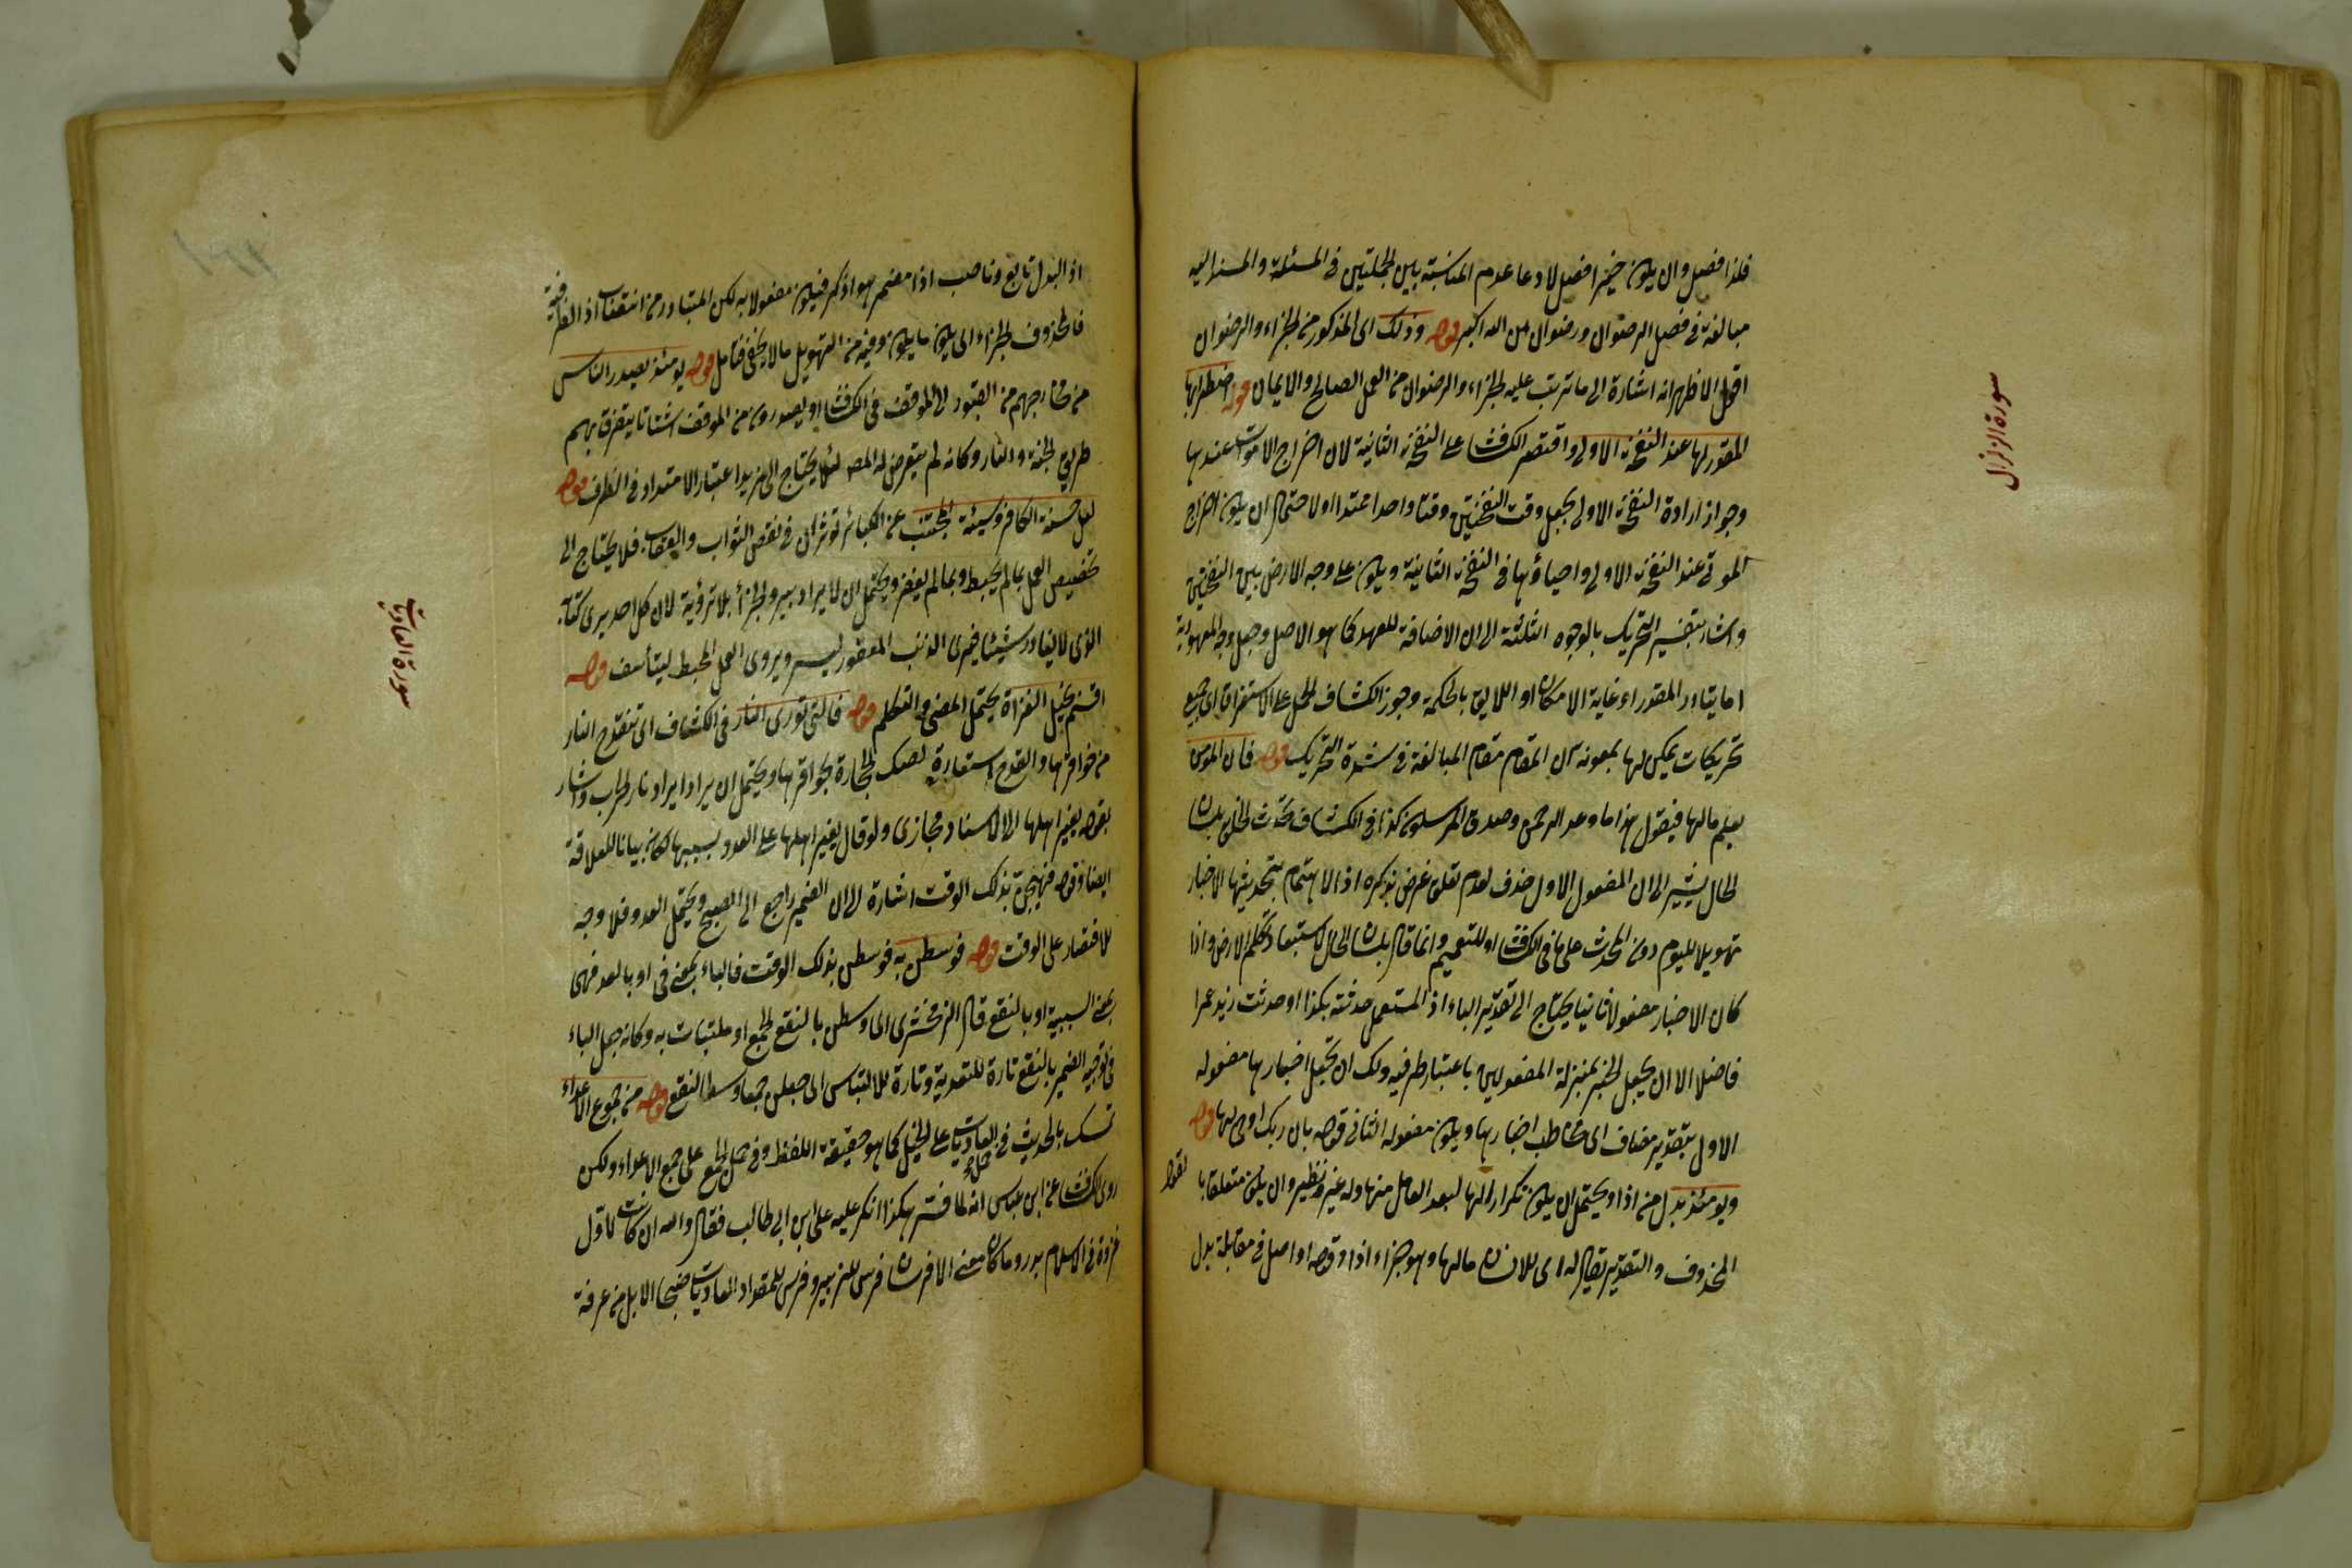 فلذا فصل وان يكون خبرا فصل لادعا عدم المناسبة بين الجملتين في المسئلة والمسند اليه
مبالغة في فضل الرضوان ورضوان من الله اكبر قوله وذلك اى المذكور من الجزاء والرضوان
اقول الاظهر انه اشارة الى ما ترتب عليه الجزاء والرضوان من العمل الصالح والايمان قوله اضطرابها
المقدر لها عند النفخة الاولى واقتصر الكشاف على النفخة الثانية لان اخراج الاموات عندها
وجواز ارادة النفخة الاولى بجعل وقت النفختين وقتا واحدا ممتدا او لاحتمال ان يكون اخراج
الموتى عند النفخة الاولى واحياؤها في النفخة الثانية ويكون على وجه الارض بين النفختين
واشار بتفسير التحريك بالوجوه الثلثة الى ان الاضافة للعهد كما هو الاصل وجعل وجه المعهودية
اما المقدر او غاية الامكان او اللايق بالحكمة وجوز الكشاف الحمل على الاستغراق اى جميع
تحريكات يمكن لها بمعونة ان المقام مقام المبالغة في شدة التحريك قوله فان المؤمن
يعلم مالها فيقول هذا ما وعد الرحمن وصدق المرسلون كذا في الكشاف تحدث الخلق بلسان
الحال يشير الى ان المفعول الاول حذف لعدم تعلق غرض بذكره اذ الاهتمام بتحديثها الاخبار
تهويلا لليوم دون المحدث على ما في الكشاف او للتعميم وانما قال بلسان الحال لاستبعاد تكلم الارض واذا
كان الاخبار مفعولا ثانيا يحتاج الى تقدير الباء اذ المستعمل حدثته بكذا او حدثت زيد عمرا
فاضلا الا ان يجعل الخبر بمنزلة المفعولين باعتبار طرفيه ولك ان تجعل اخبارها مفعوله
الاول بتقدير مضاف اى مخاطب اخبارها ويكون مفعوله الثاني قوله بان ربك اوحى لها قوله
ويومئذ بدل من اذا ويحتمل ان يكون تكرارا لها لبعد العامل منها وله غير نظير وان يكون متعلقا بالقول
المحذوف والتقدير يقال له اى للانسان مالها وهو جزاء اذا وقوله او اصل في مقابلة بدل
سورة الزلزال
اذ البدل تابع وناصب اذا مضمر هو اذكر فيكون مفعولا به لكن المتبادر من انتصاب اذا الظرفية
فالمحذوف الجزاء اى يكون ما يكون وفيه من التهويل ما لا يخفى فتامل قوله يومئذ يصدر الناس
من مخارجهم من القبور الى الموقف في الكشاف او يصدرون من الموقف اشتاتا يتفرق بهم
طريق الجنة والنار وكانه لم يتعرض له المص لئلا يحتاج الى مزيد اعتبار الامتداد في الظرف قوله
لعل حسنة الكافر وسيئة المجتنب عن الكبائر تؤثران في نقص الثواب والعقاب فلا يحتاج الى
تخصيص العمل بما لم يحبط وبما لم يغفر ويحتمل ان لا يراد بيره الجزاء بلا ترؤية لان كل احد يرى كتابه
الذى لا يغادر شيئا فيرى الذنب المغفور ليسر ويروى العمل المحبط ليتأسف قوله
اقسم بخيل الغزاة يحتمل المضي والتكلم قوله فالتي تورى النار في الكشاف اى تنقدح النار
من حوافرها والقدح استعارة لصك الحجارة بحوافرها ويحتمل ان يراد ايراد نار الحرب واشار
بقوله يغير اهلها الى الاسناد مجازى ولو قال يغير اهلها على العدو بسببها لكان بيانا للعلاقة
ايضا وقوله فهيجن بذلك الوقت اشارة الى ان الضمير راجع الى الصبح ويحتمل العدو فلا وجه
للاقتصار على الوقت قوله فوسطن به فوسطن بذلك الوقت فالباء بمعنى في او بالعدو فهى
بمعنى السببية او بالنقع قال الزمخشرى اى وسطن بالنقع الجمع او ملتبسات به وكانه جعل الباء
في توجيه الضمير بالنقع تارة للتعدية وتارة للالتباس اى جعلن جمعا وسط النقع قوله من جموع الاعداء
تمسك بالحديث في حمل العاديات على الخيل كما هو حقيقة اللفظ وفي حمل الجمع على جمع الاعداء ولكن
روى الكشاف عن ابن عباس انه لما فسر هكذا انكر عليه على ابن ابى طالب فقال والله ان كانت لاول
غزوة في الاسلام بدر وما كان معنا الا فرسان فرس للزبير وفرس للمقداد العاديات ضبحا الابل من عرفة
سورة العاديات